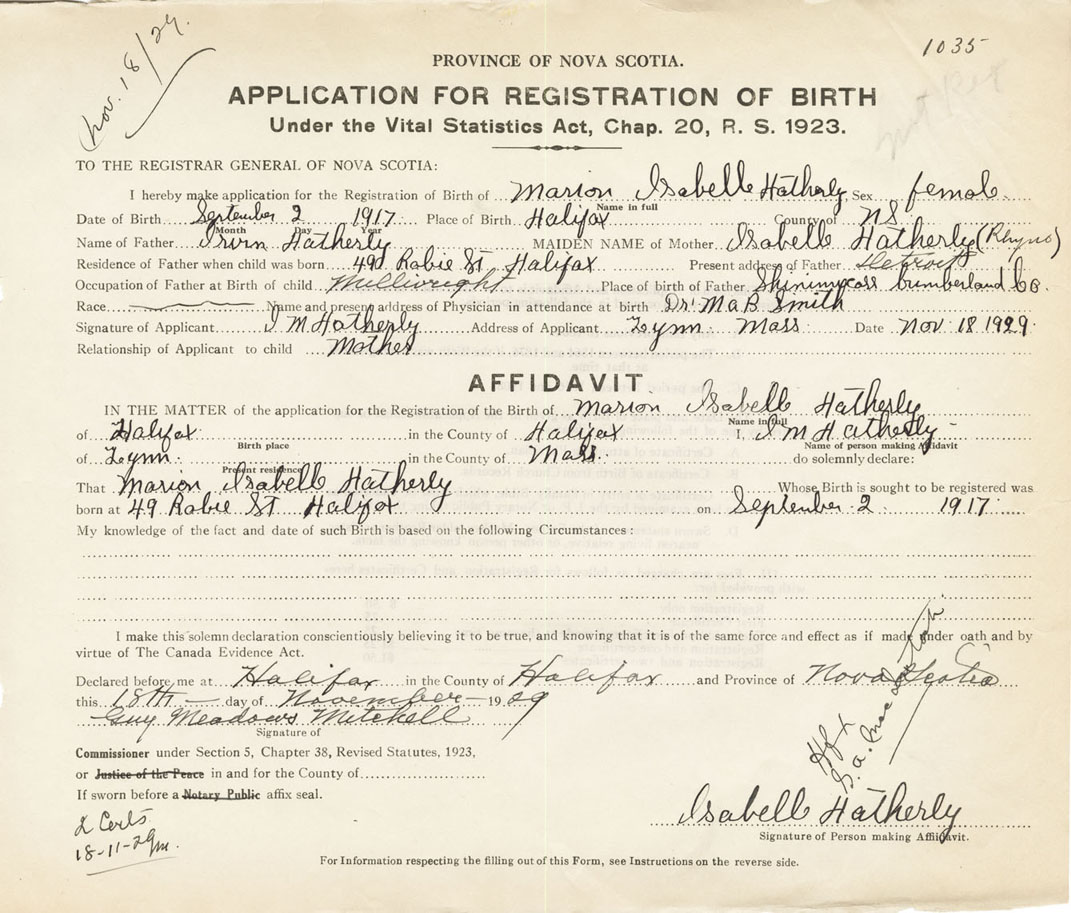 Nov. 18/29.
1035
PROVINCE OF NOVA SCOTIA.
APPLICATION FOR REGISTRATION OF BIRTH
Under the Vital Statistics Act, Chap. 20, R. S. 1923.
TO THE REGISTRAR GENERAL OF NOVA SCOTIA:
I hereby make application for the Registration of Birth of Marion Isabelle Hatherly Sex female
Name in full
Date of Birth September 2 1917 Place of Birth Halifax County of NS
Month Day Year
Name of Father Irvin Hatherly MAIDEN NAME of Mother Isabelle Hatherly (Rhyno)
Residence of Father when child was born 49 Robie St Halifax Present address of Father Detroit
Occupation of Father at Birth of child Millwright Place of birth of Father Cumberland Co.
Race Name and present address of Physician in attendance at birth Dr. Ma B Smith
Signature of Applicant I M Hatherly Address of Applicant Lynn Mass Date Nov 18 1929
Relationship of Applicant to child Mother
AFFIDAVIT
IN THE MATTER of the application for the Registration of the Birth of Marion Isabell Hatherly
Name in full
of Halifax in the County of Halifax I, I M Hatherly
Birth place Name of person making Affidavit
of Lynn in the County of Mass. do solemnly declare:
Present residence
That Marion Isabelle Hatherly Whose Birth is sought to be registered was
born at 49 Robie St Halifax on September 2 1917
My knowledge of the fact and date of such Birth is based on the following Circumstances:
I make this solemn declaration conscientiously believing it to be true, and knowing that it is of the same force and effect as if made under oath and by
virtue of The Canada Evidence Act.
Declared before me at Halifax in the County of Halifax and Province of Nova Scotia
this 18th day of November 1929
Guy Meadows Mitchell
Signature of
Commissioner under Section 5, Chapter 38, Revised Statutes, 1923,
or Justice of the Peace in and for the County of
If sworn before a Notary Public affix seal.
Hfx
2 Certs
18-11-29
Isabell Hatherly
Signature of Person making Affidavit.
For Information respecting the filling out of this Form, see Instructions on the reverse side.